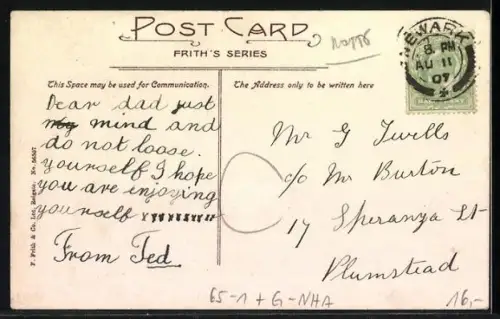 POST CARD
FRITH'S SERIES
NEWARK
8 PM
AU 11
07
This Space may be used for Communication.
The Address only to be written here
Dear dad just
mind and
do not loose
yourself I hope
you are enjoying
yourself xxxxxxxxx
From Ted
Mr G Twells
c/o Mr Burton
17 Speranza St
Plumstead
F. Frith & Co. Ltd., Reigate. No.
65-1+G-NHA
16,-